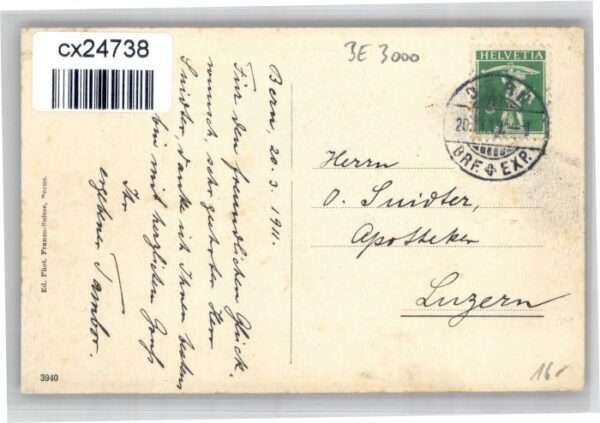 cx24738
BE 3000
HELVETIA
BRF. EXP.
Bern, 20. 3. 1911.
Für den freundlichen Glück-
wunsch, sehr geehrter Herr
Suidter, danke ich Ihnen bestens
bin mit herzlichem Gruß
Ihr
ergebener
Herrn
O. Suidter,
Apotheker
Luzern
Ed. Phot. Franco-Suisse, Berne.
3940
16.-